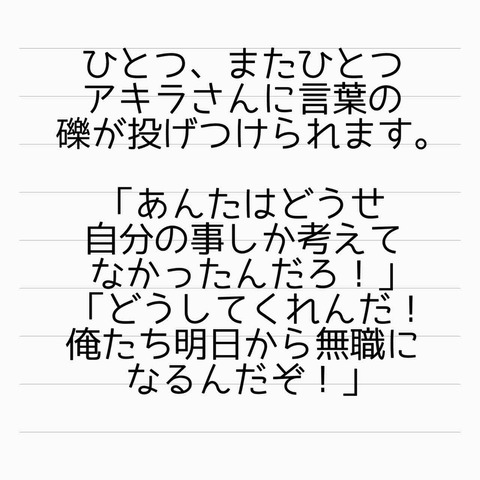 ひとつ、またひとつ
アキラさんに言葉の
礫が投げつけられます。
「あんたはどうせ
自分の事しか考えて
なかったんだろ！」
「どうしてくれんだ！
俺たち明日から無職に
なるんだぞ！」